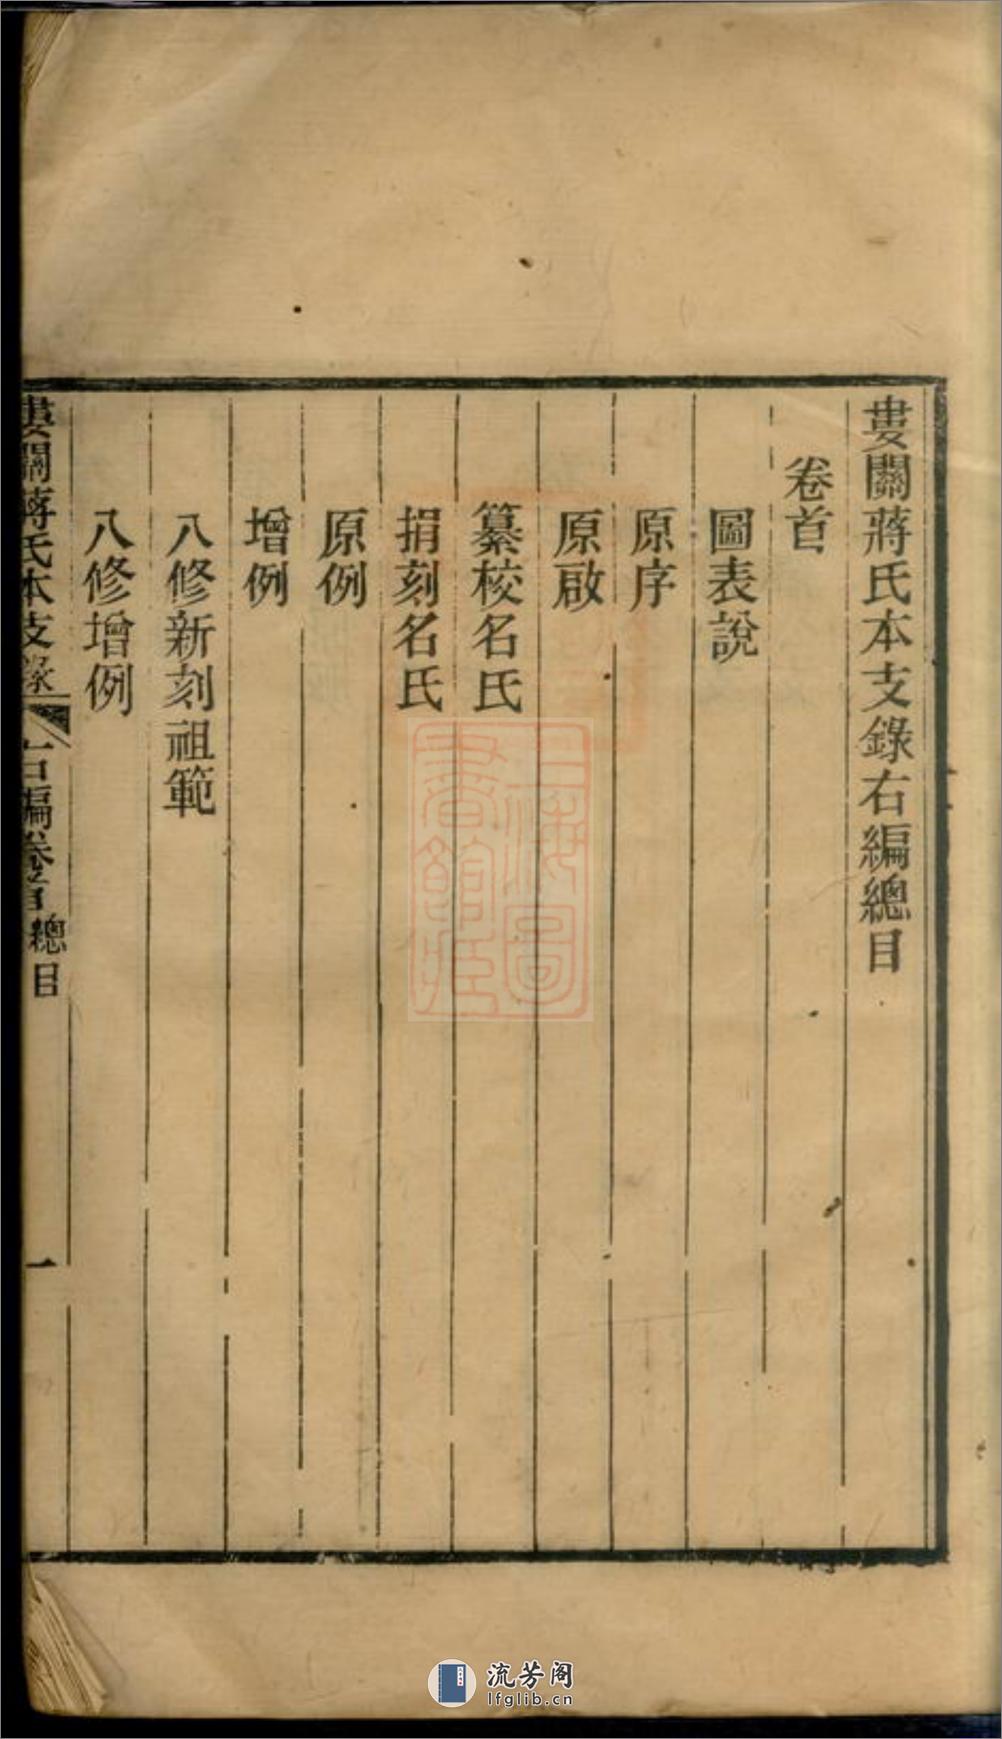 婁關蔣氏本支錄右編總目
卷首
圖表說
原序
原啟
纂校名氏
捐刻名氏
原例
增例
八修新刻祖範
八修增例
婁關蔣氏本支錄
右編卷首總目
一
上海圖書館藏
流芳阁
lfglib.cn